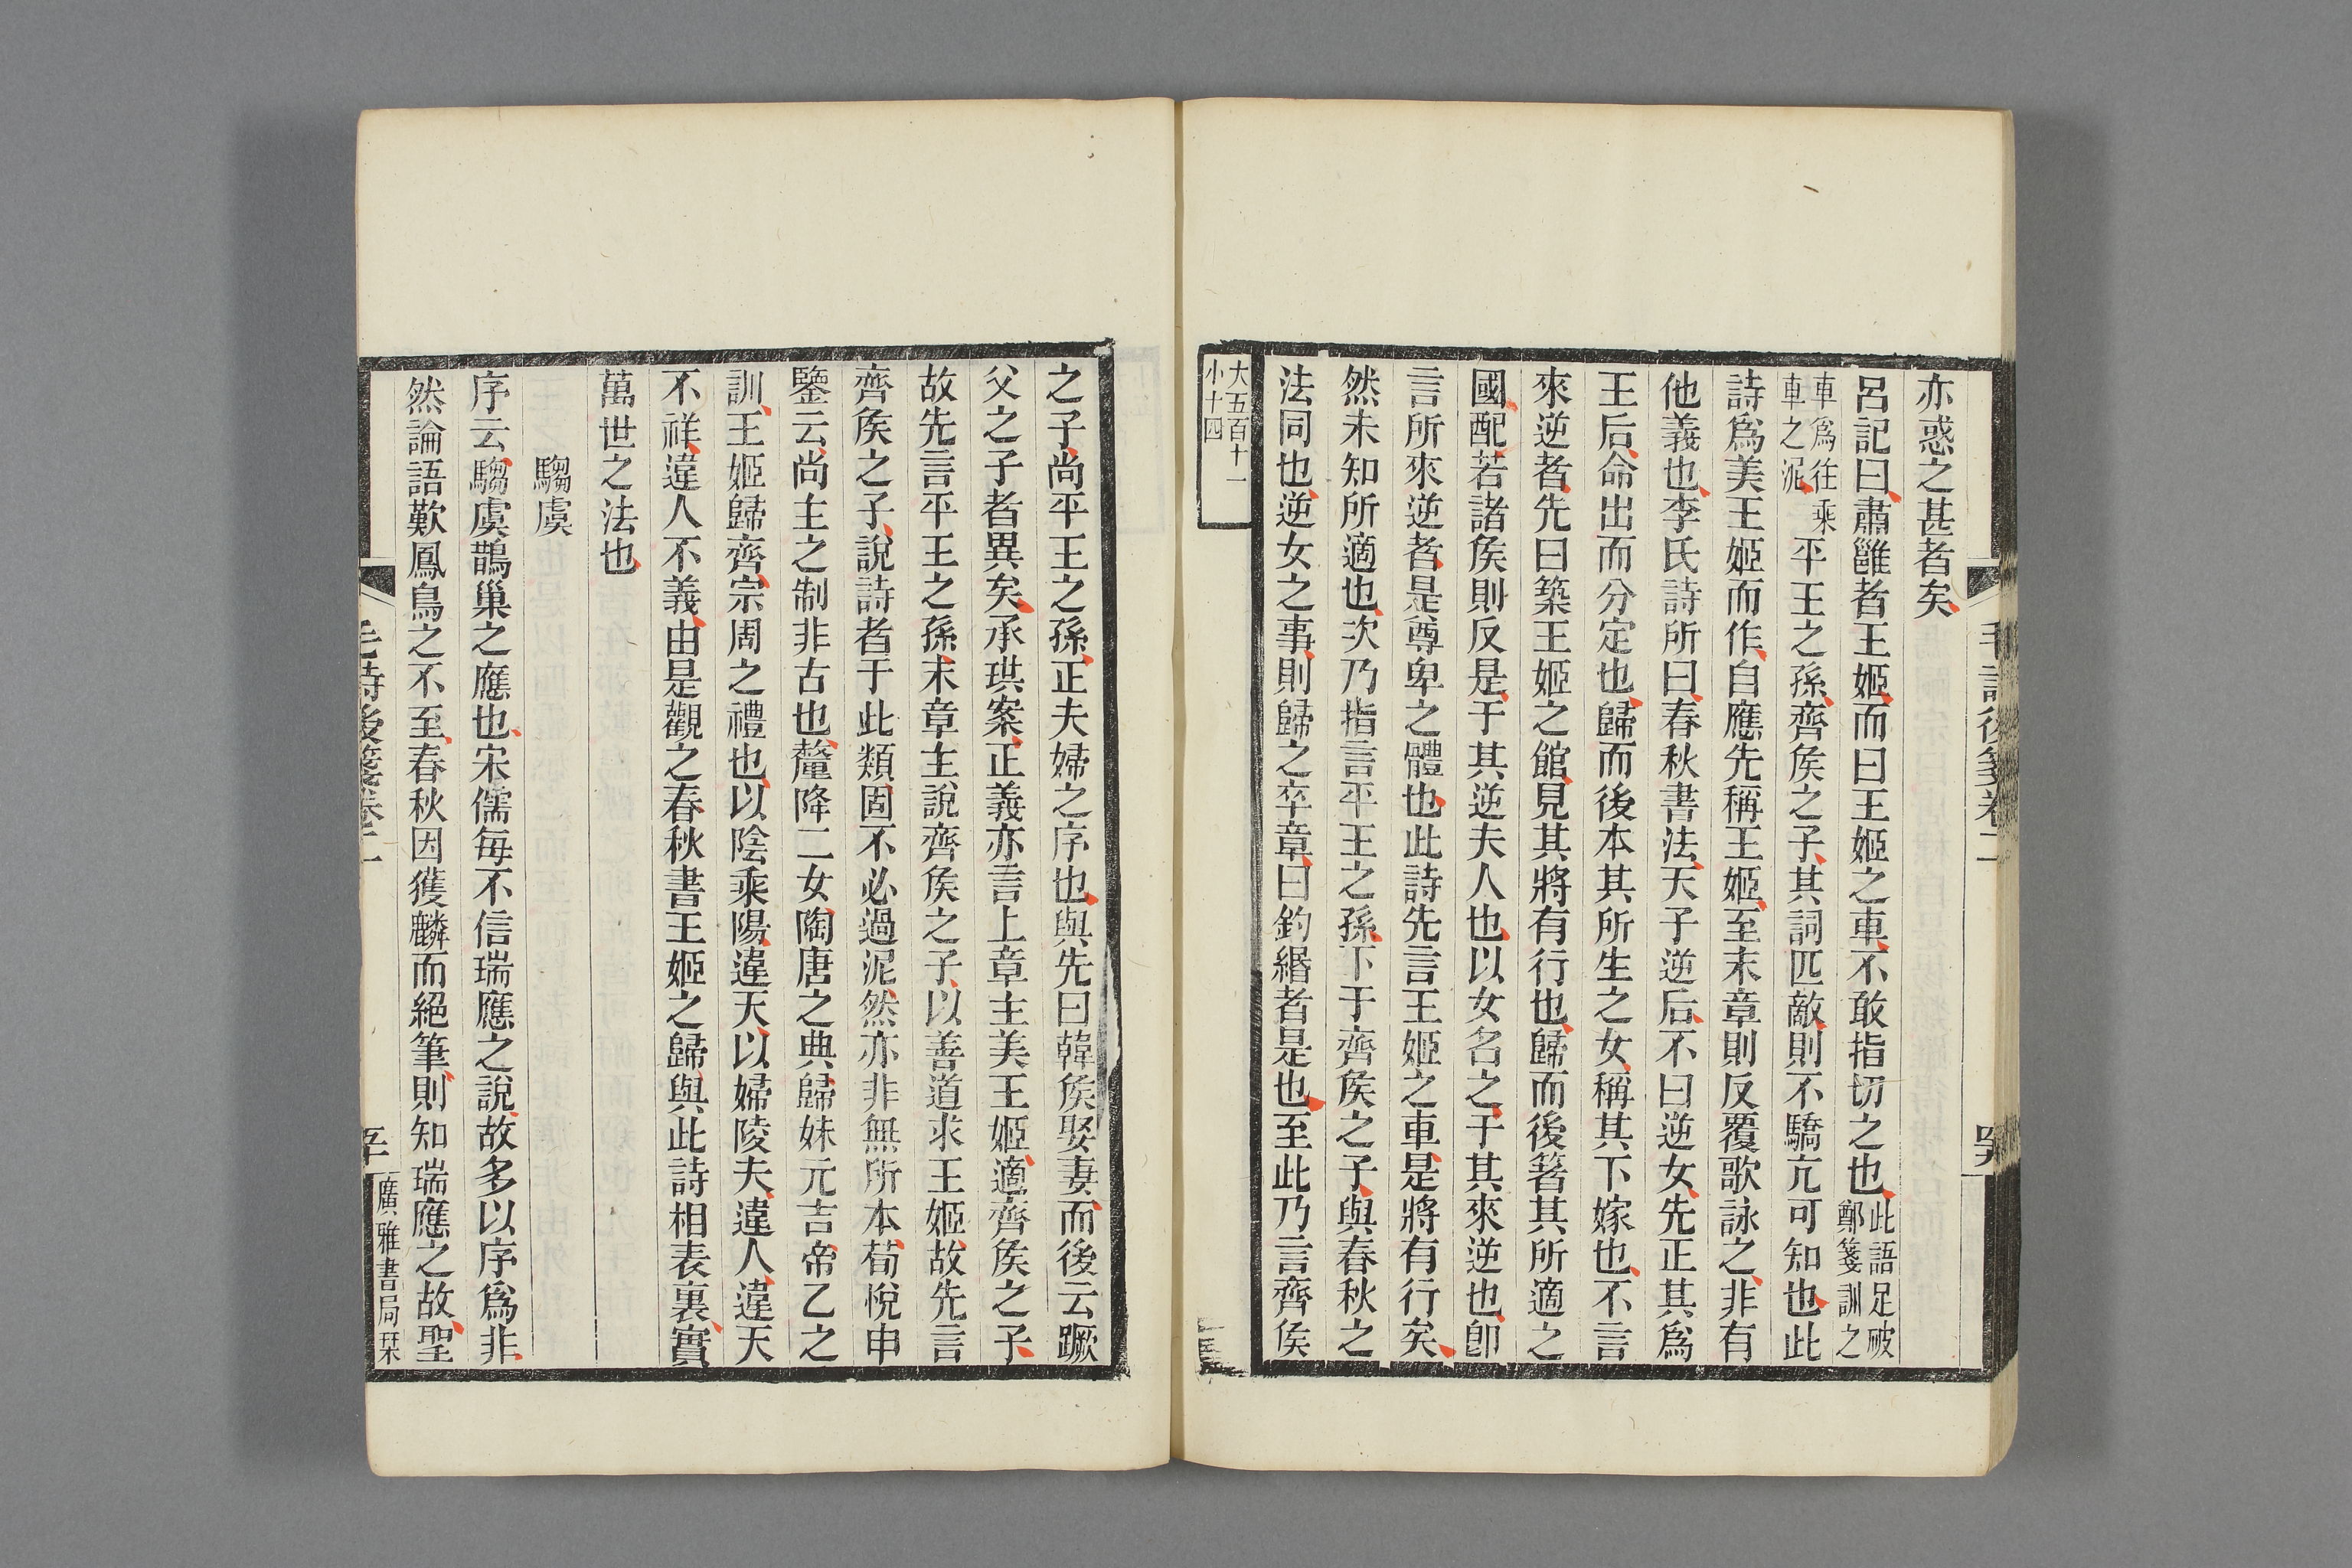 亦惑之甚者矣
呂記曰肅雝者王姬而曰王姬之車不敢指切之也此語足破鄭箋訓之
車爲往乘車之泥平王之孫齊矦之子其詞匹敵則不驕亢可知也此
詩爲美王姬而作自應先稱王姬至末章則反覆歌詠之非有
他義也李氏詩所曰春秋書法天子逆后不曰逆女先正其爲
王后命出而分定也歸而後本其所生之女稱其下嫁也不言
來逆者先曰築王姬之館見其將有行也歸而後箸其所適之
國配若諸矦則反是于其逆夫人也以女名之于其來逆也卽
言所來逆者是尊卑之體也此詩先言王姬之車是將有行矣
然未知所適也次乃指言平王之孫下于齊矦之子與春秋之
法同也逆女之事則歸之卒章曰釣緡者是也至此乃言齊矦
大五百十一
小十四
毛詩後箋卷二
之子尚平王之孫正夫婦之序也與先曰韓矦娶妻而後云蹶
父之子者異矣承珙案正義亦言上章主美王姬適齊矦之子
故先言平王之孫末章主說齊矦之子以善道求王姬故先言
齊矦之子說詩者于此類固不必過泥然亦非無所本荀悅申
鑒云尚主之制非古也釐降二女陶唐之典歸妹元吉帝乙之
訓王姬歸齊宗周之禮也以陰乘陽違天以婦陵夫違人違天
不祥違人不義由是觀之春秋書王姬之歸與此詩相表裏實
萬世之法也
騶虞
序云騶虞鵲巢之應也宋儒每不信瑞應之說故多以序爲非
然論語歎鳳鳥之不至春秋因獲麟而絕筆則知瑞應之故聖
毛詩後箋卷二
廣雅書局栞